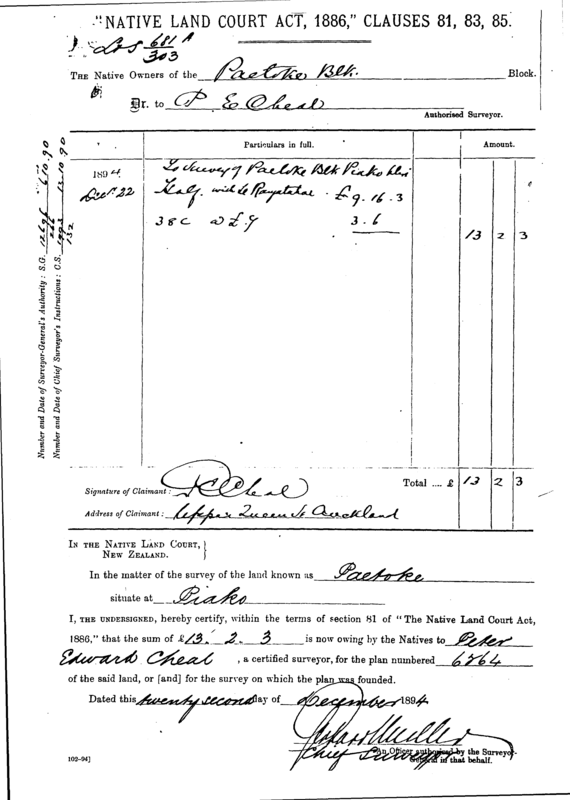 "NATIVE LAND COURT ACT, 1886," CLAUSES 81, 83, 85.
681 A
303
THE NATIVE OWNERS OF the Paetoke Blk. Block.
Dr. to P E Cheal
Authorised Surveyor.
Particulars in full. Amount.
1894. To Survey of Paetoke Blk Piako
Decr. 22 Half. with £9. 16. 3
38C @ £9 3. 6
13 2 3
Number and Date of Surveyor-General's Authority: S.G. 6.10.90
Number and Date of Chief Surveyor's Instructions: C.S. 13.10.90
132
Total .... £ 13 2 3
Signature of Claimant: P E Cheal
Address of Claimant: Upper Queen St Auckland
IN THE NATIVE LAND COURT,
NEW ZEALAND.
In the matter of the survey of the land known as Paetoke
situate at Piako
I, THE UNDERSIGNED, hereby certify, within the terms of section 81 of "The Native Land Court Act,
1886," that the sum of £13. 2. 3 is now owing by the Natives to Peter
Edward Cheal, a certified surveyor, for the plan numbered 6764
of the said land, or [and] for the survey on which the plan was founded.
Dated this twenty second day of December 1894
Chief Surveyor
An Officer authorised by the Surveyor-
General in that behalf.
102-94]